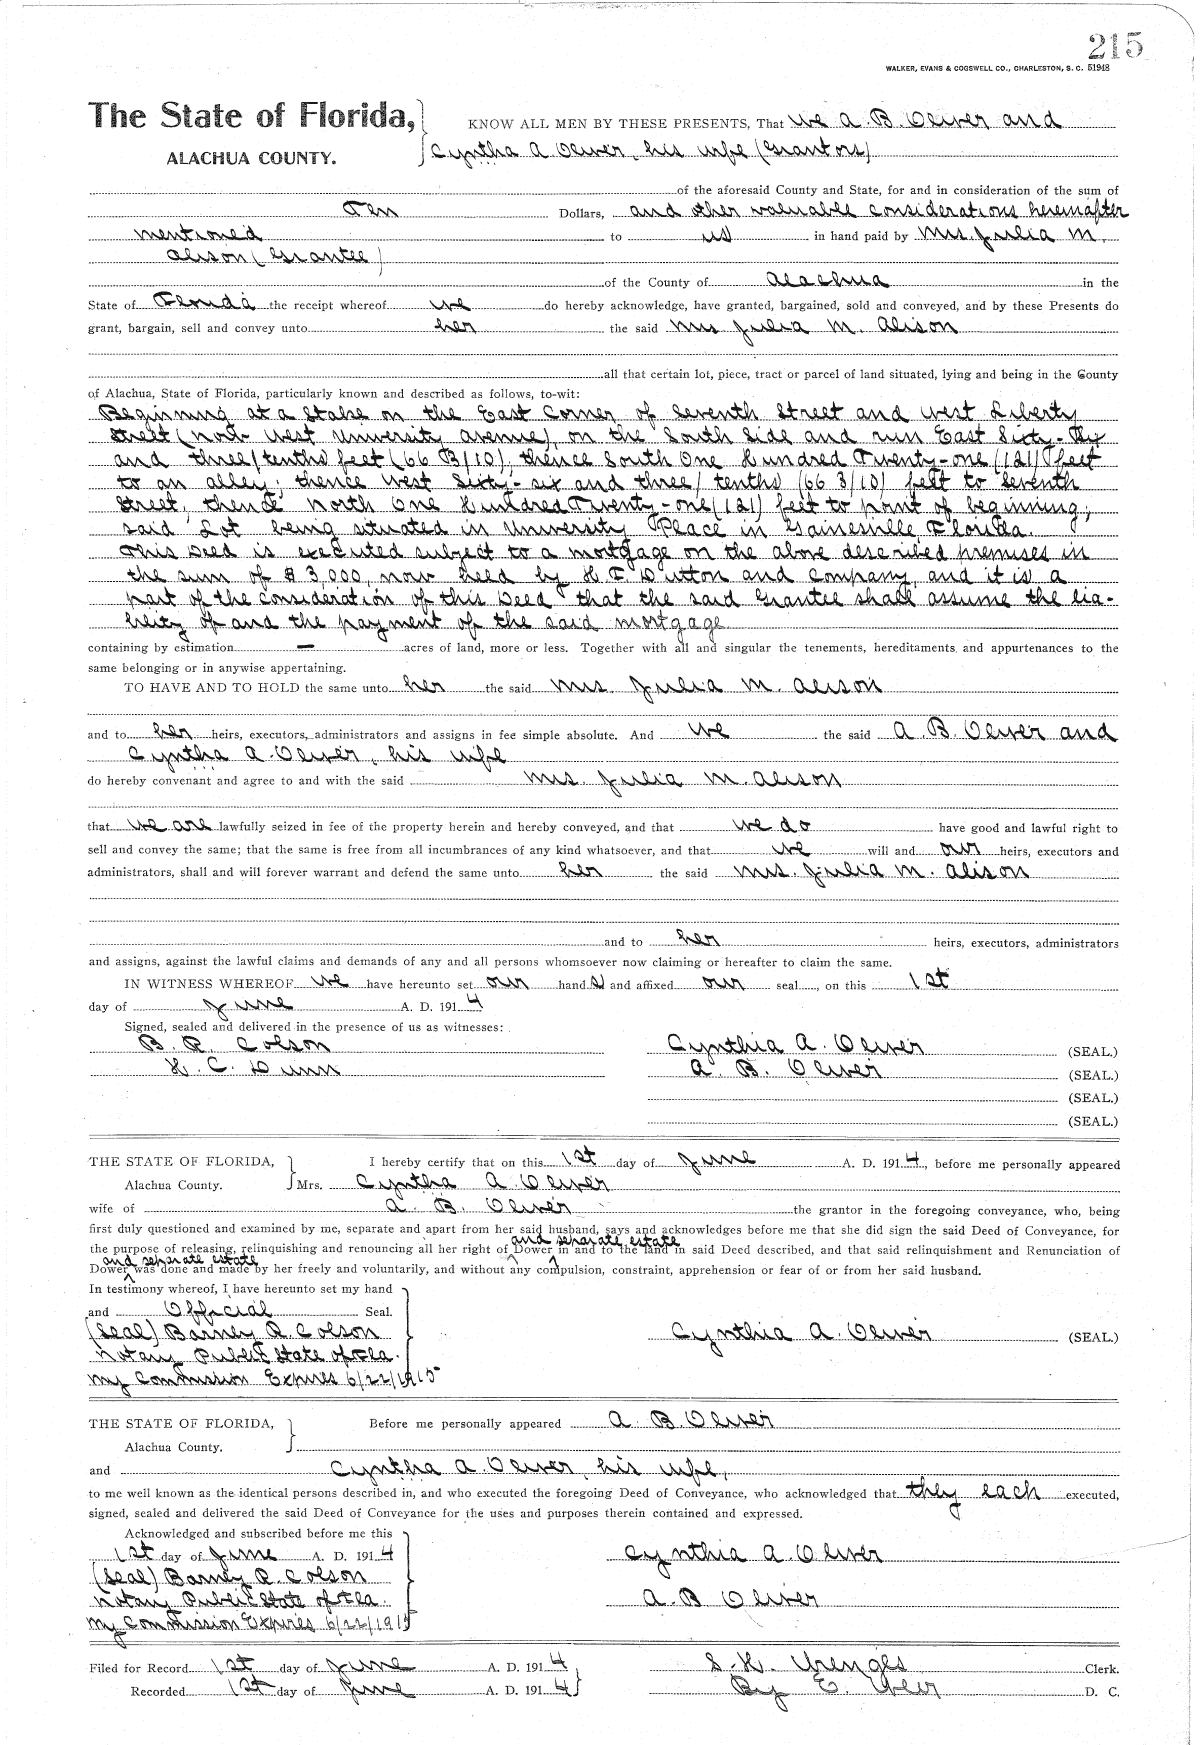 215
WALKER, EVANS & COGSWELL CO., CHARLESTON, S. C. 51948
The State of Florida,
KNOW ALL MEN BY THESE PRESENTS, That we A. B. Oliver and
ALACHUA COUNTY.
Cyntha A. Oliver, his wife (Grantors)
of the aforesaid County and State, for and in consideration of the sum of
Ten Dollars, and other valuable considerations hereinafter
mentioned to us in hand paid by Mrs. Julia M.
Alison (Grantee)
of the County of Alachua in the
State of Florida the receipt whereof we do hereby acknowledge, have granted, bargained, sold and conveyed, and by these Presents do
grant, bargain, sell and convey unto her the said Mrs Julia M. Alison
all that certain lot, piece, tract or parcel of land situated, lying and being in the County
of Alachua, State of Florida, particularly known and described as follows, to-wit:
Beginning at a stake on the East Corner of Seventh Street and West Liberty
Street (now West University Avenue), on the South Side and run East Sixty-six
and three/tenths feet (66 3/10), thence South One Hundred Twenty-one (121) feet
to an alley; thence West Sixty-six and three/tenths (66 3/10) feet to Seventh
Street, thence North One Hundred Twenty-one (121) feet to point of beginning;
said Lot being situated in University Place in Gainesville, Florida.
This Deed is executed subject to a mortgage on the above described premises in
the sum of $3,000, now held by H F Dutton and Company, and it is a
part of the consideration of this Deed that the said Grantee shall assume the lia-
bility of and the payment of the said mortgage
containing by estimation — acres of land, more or less. Together with all and singular the tenements, hereditaments and appurtenances to the
same belonging or in anywise appertaining.
TO HAVE AND TO HOLD the same unto her the said Mrs. Julia M. Alison
and to her heirs, executors, administrators and assigns in fee simple absolute. And we the said A. B. Oliver and
Cyntha A. Oliver, his wife
do hereby convenant and agree to and with the said Mrs. Julia M. Alison
that we are lawfully seized in fee of the property herein and hereby conveyed, and that we do have good and lawful right to
sell and convey the same; that the same is free from all incumbrances of any kind whatsoever, and that we will and our heirs, executors and
administrators, shall and will forever warrant and defend the same unto her the said Mrs. Julia M. Alison
and to her heirs, executors, administrators
and assigns, against the lawful claims and demands of any and all persons whomsoever now claiming or hereafter to claim the same.
IN WITNESS WHEREOF we have hereunto set our hand s and affixed our seal, on this 1st
day of June A. D. 1914
Signed, sealed and delivered in the presence of us as witnesses:
B. R. Colson Cynthia A. Oliver (SEAL.)
H. C. Dunn A. B. Oliver (SEAL.)
(SEAL.)
(SEAL.)
THE STATE OF FLORIDA, I hereby certify that on this 1st day of June A. D. 1914, before me personally appeared
Alachua County. Mrs. Cyntha A Oliver
wife of A. B. Oliver the grantor in the foregoing conveyance, who, being
first duly questioned and examined by me, separate and apart from her said husband, says and acknowledges before me that she did sign the said Deed of Conveyance, for
and separate estate
the purpose of releasing, relinquishing and renouncing all her right of Dower in and to the land in said Deed described, and that said relinquishment and Renunciation of
and separate estate
Dower was done and made by her freely and voluntarily, and without any compulsion, constraint, apprehension or fear of or from her said husband.
In testimony whereof, I have hereunto set my hand
and Official Seal.
(Seal) Barney R. Colson Cynthia A. Oliver (SEAL.)
Notary Public State of Fla.
My Commission Expires 6/22/1915
THE STATE OF FLORIDA, Before me personally appeared A. B. Oliver
Alachua County.
and Cyntha A. Oliver, his wife,
to me well known as the identical persons described in, and who executed the foregoing Deed of Conveyance, who acknowledged that they each executed,
signed, sealed and delivered the said Deed of Conveyance for the uses and purposes therein contained and expressed.
Acknowledged and subscribed before me this
1st day of June A. D. 1914 Cynthia A. Oliver
(Seal) Barney R. Colson
Notary Public State of Fla. A. B Oliver
My Commission Expires 6/22/1915
Filed for Record 1st day of June A. D. 1914 S. H. Wienges Clerk.
Recorded 1st day of June A. D. 1914 By E. D. C.